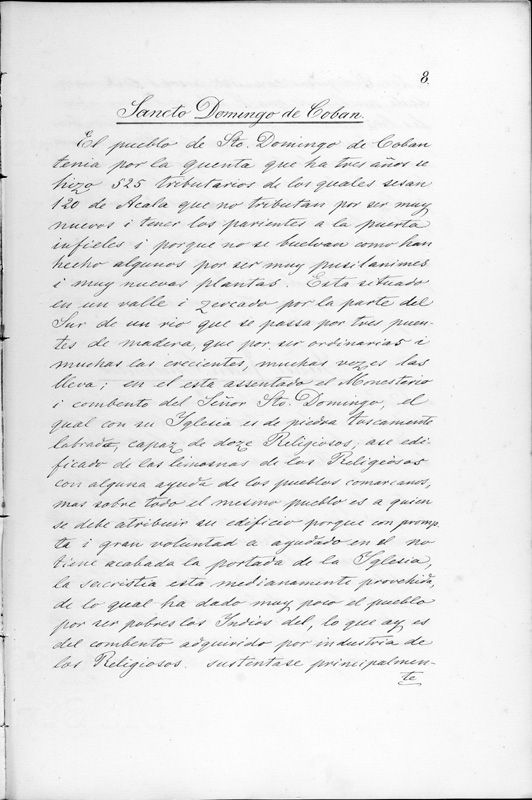 8.
Sancto Domingo de Coban.
El pueblo de Sto. Domingo de Coban
tenia por la quenta que ha tres años se
hizo 525 tributarios de los quales sesan
120 de Acala que no tributan por ser muy
nuevos i tener los parientes a la puerta
infieles i porque no se buelvan como han
hecho algunos por ser muy pusilanimes
i muy nuevas plantas. Esta situado
en un valle i zercado por la parte del
Sur de un rio que se passa por tres puen-
tes de madera, que por ser ordinarias i
muchas las crecientes, muchas vezes las
lleva; en el esta assentado el Monesterio
i combento del Señor Sto. Domingo, el
qual con su Iglesia es de piedra toscamente
labrada, capaz de doze Religiosos; ase edi-
ficado de las limosnas de los Religiosos
con alguna ayuda de los pueblos comarcanos,
mas sobre todo el mesmo pueblo es a quien
se debe atribuir su edificio porque con promp-
ta i gran voluntad a ayudado en el no
tiene acabada la portada de la Iglesia,
la sacristia esta medianamente provehida,
de lo qual ha dado muy poco el pueblo
por ser pobres los Indios del, lo que ay es
del combento adquirido por industria de
los Religiosos. sustentase principalmen-
te